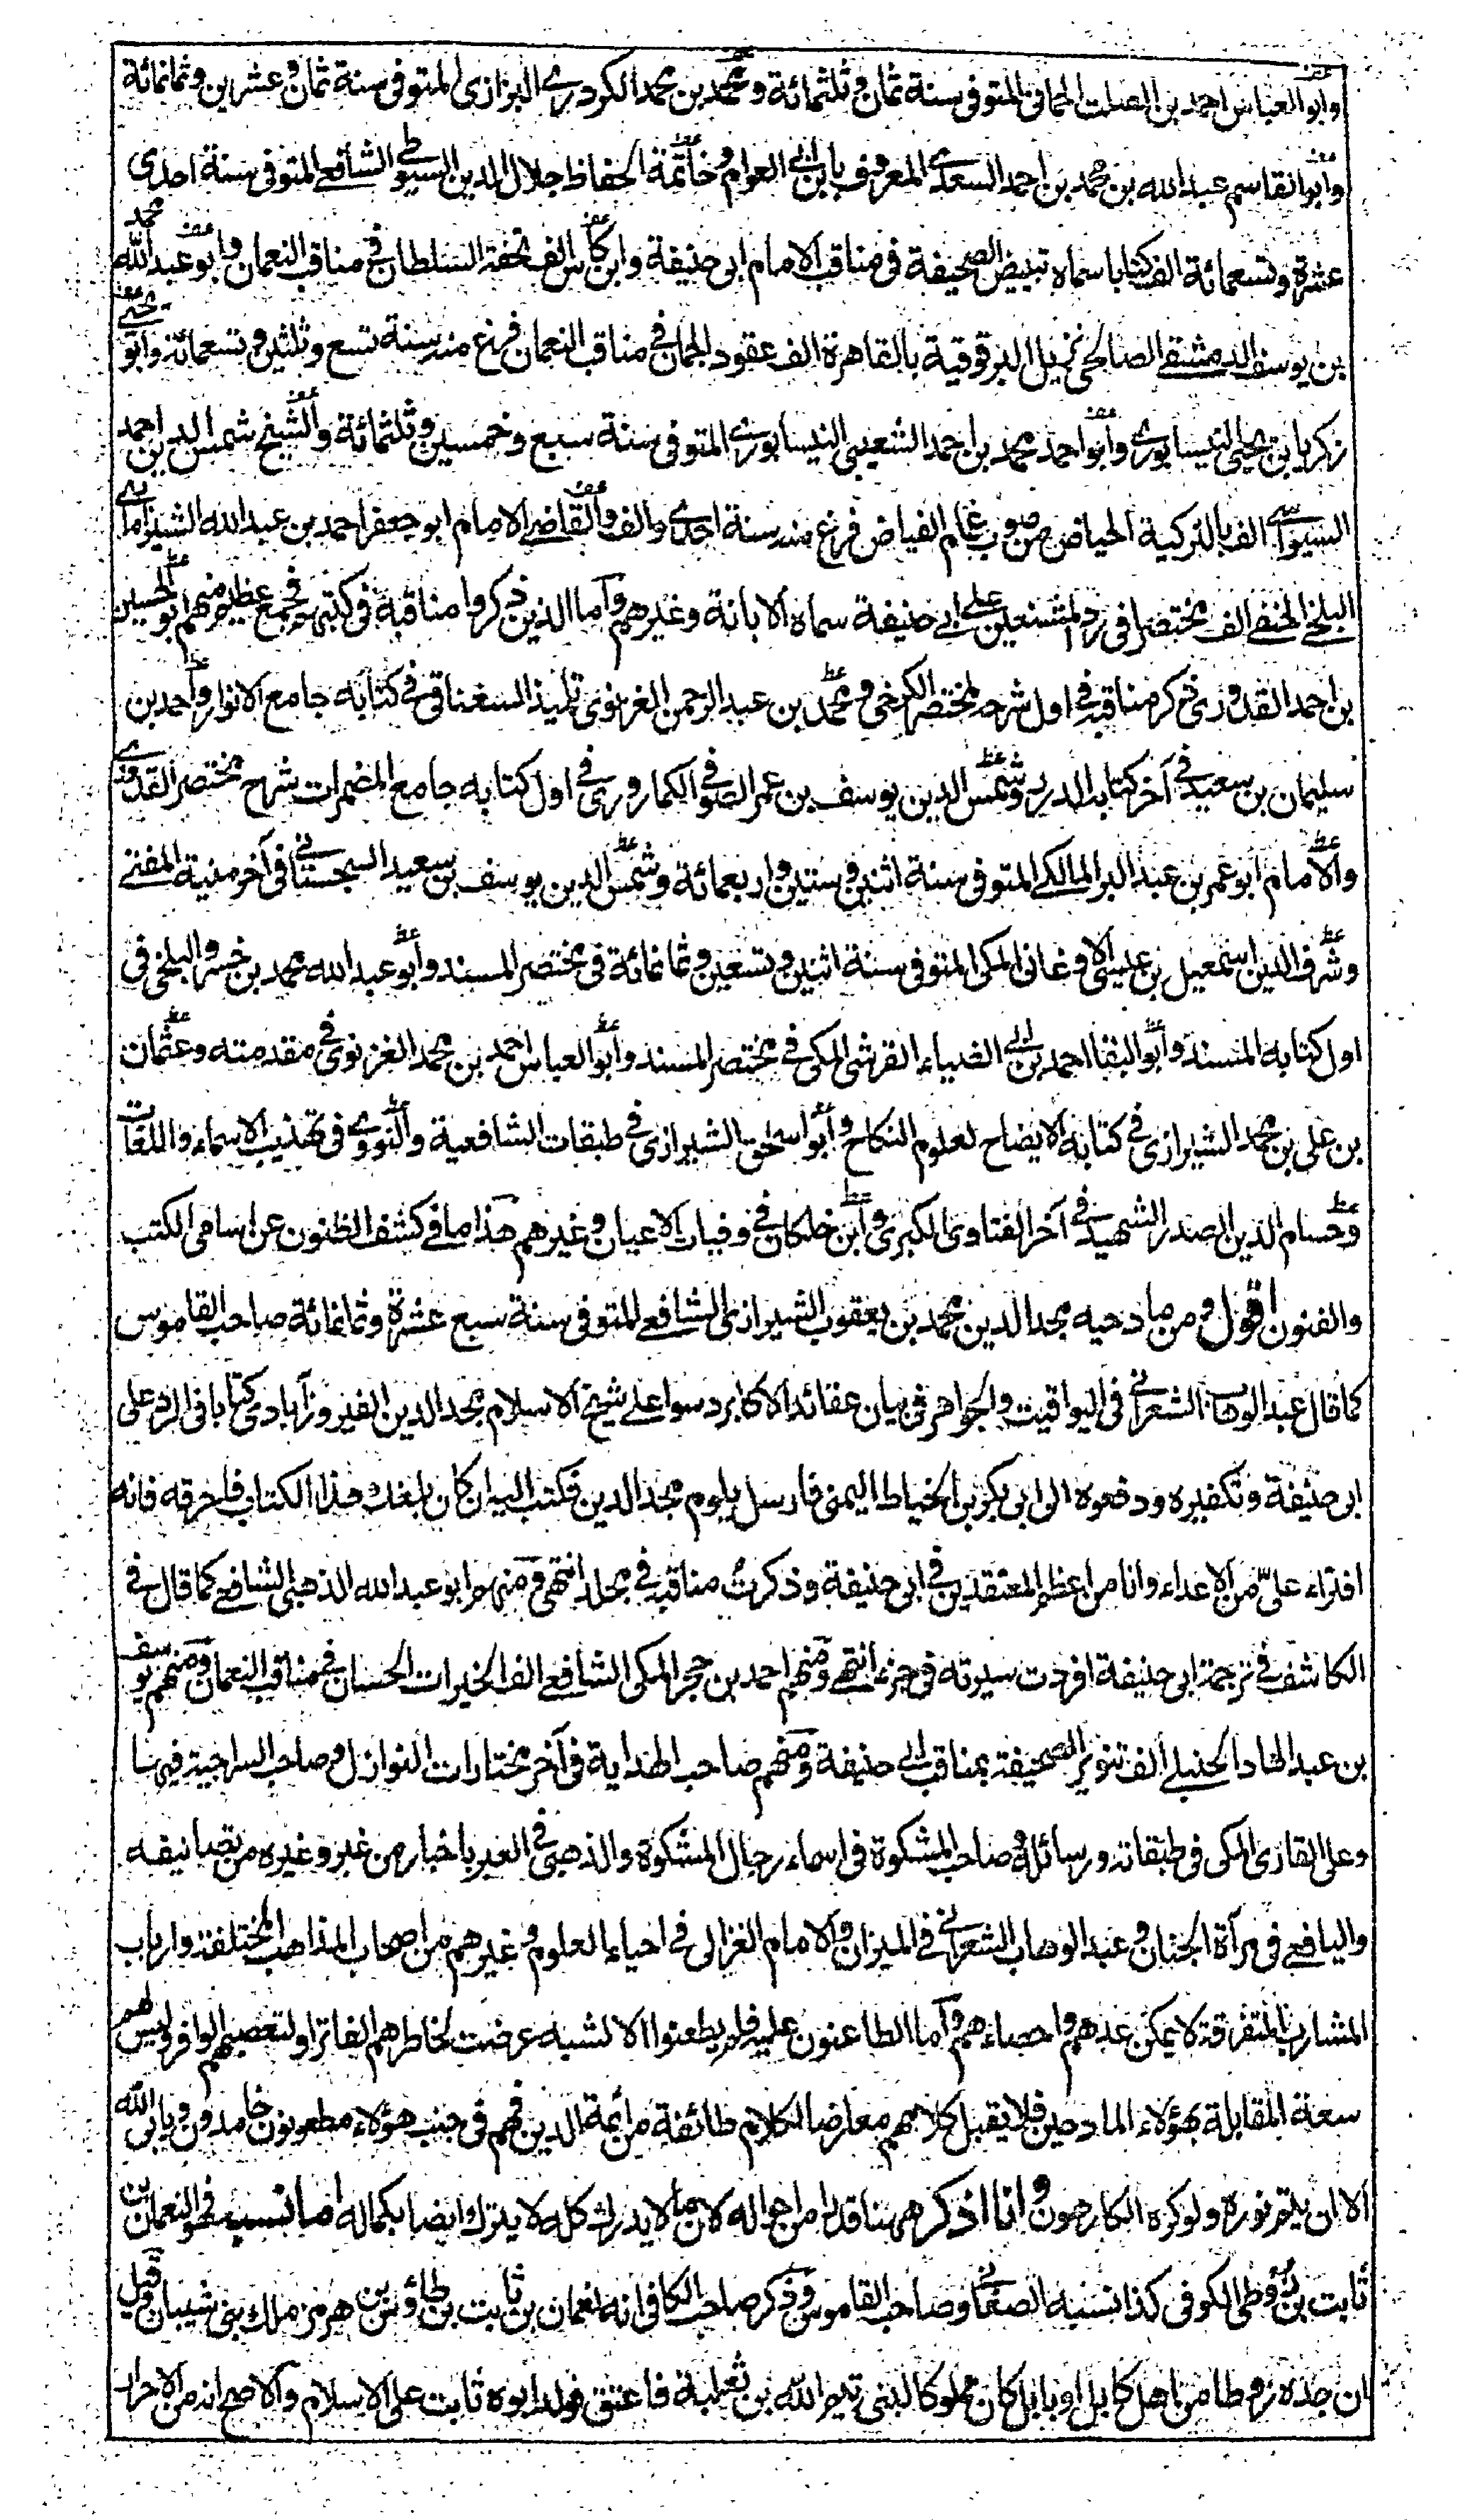 وابو العباس احمد بن الصلت الحمانى المتوفى سنة ثمان وثلثمائة ومحمد بن محمد الكردرى البزازى المتوفى سنة ثمان وعشرين وثمانمائة
وابو القاسم عبد الله بن محمد بن احمد السعدى المعروف بابن ابى العوام وخاتمة الحفاظ جلال الدين السيوطى الشافعى المتوفى سنة احدى
عشرة وتسعمائة الف كتابا سماه تبييض الصحيفة فى مناقب الامام ابى حنيفة وابن كاس الف تحفة السلطان فى مناقب النعمان وابو عبد الله محمد
بن يوسف الدمشقى الصالحى نزيل البرقوقية بالقاهرة الف عقود الجمان فى مناقب النعمان فرغ منه سنة تسع وثلثين وتسعمائة وابو يحيى
زكريا بن يحيى النيسابورى وابو احمد محمد بن احمد الشعيبى النيسابورى المتوفى سنة سبع وخمسين وثلثمائة والشيخ شمس الدين احمد
السيواسى الف بالتركية الحياض من صوب غمام الفياض فرغ منه سنة احدى والف والقاضى الامام ابو جعفر احمد بن عبد الله الشيراماذى
البلخى الحنفى الف مختصرا فى رد المتشنعين على ابى حنيفة سماه الابانة وغيرهم واما الذين ذكروا مناقبه فى كتبهم فجمع عظيم منهم ابو الحسين
بن احمد القدورى ذكر مناقبه فى اول شرحه لمختصر الكرخى ومحمد بن عبد الرحمن الغزنوى تلميذ السغناقى فى كتابه جامع الانوار واحمد بن
سليمان بن سعيد فى آخر كتابه الدرر وشمس الدين يوسف بن عمر الصوفى الكمارورى فى اول كتابه جامع المضمرات شرح مختصر القدورى
والامام ابو عمر بن عبد البر المالكى المتوفى سنة اثنين وستين واربعمائة وشمس الدين يوسف بن سعيد السجستانى فى آخر منية المفتى
وشرف الدين اسمعيل بن عيسى الاوغانى المكى المتوفى سنة اثنين وتسعين وثمانمائة فى مختصر المسند وابو عبد الله محمد بن خسرو البلخى فى
اول كتابه المسند وابو البقا احمد بن ابى الضياء القرشى المكى فى مختصر المسند وابو العباس احمد بن محمد الغزنوى فى مقدمته وعثمان
بن على بن محمد الشيرازى فى كتابه الايضاح لعلوم النكاح وابو اسحق الشيرازى فى طبقات الشافعية والنووى فى تهذيب الاسماء واللغات
وحسام الدين الصدر الشهيد فى آخر الفتاوى الكبرى وابن خلكان فى وفيات الاعيان وغيرهم هذا ما فى كشف الظنون عن اسامى الكتب
والفنون اقول ومن مادحيه مجد الدين محمد بن يعقوب الشيرازى الشافعى المتوفى سنة سبع عشرة وثمانمائة صاحب القاموس
كما قال عبد الوهاب الشعرانى فى اليواقيت والجواهر فى بيان عقائد الاكابر دسوا على شيخ الاسلام مجد الدين الفيروزآبادى كتابا فى الرد على
ابى حنيفة وتكفيره ودفعوه الى ابى بكر بن الخياط اليمنى فارسل يلوم مجد الدين فكتب اليه ان كان بلغك هذا الكتاب فاحرقه فانه
افتراء علىّ من الاعداء وانا من اعظم المعتقدين فى ابى حنيفة وذكرت مناقبه فى مجلد انتهى ومنهم ابو عبد الله الذهبى الشافعى كما قال فى
الكاشف فى ترجمة ابى حنيفة افردت سيرته فى جزء انتهى ومنهم احمد بن حجر المكى الشافعى الف الخيرات الحسان فى مناقب النعمان ومنهم يوسف
بن عبد الهاد الحنبلى الف تنوير الصحيفة بمناقب ابى حنيفة ومنهم صاحب الهداية فى آخر مختارات النوازل وصاحب السراجية فيها
وعلى القارى المكى فى طبقاته ورسائله وصاحب المشكوة فى اسماء رجال المشكوة والذهبى فى العبر باخبار من غبر وغيره من تصانيفه
واليافعى فى مرآة الجنان وعبد الوهاب الشعرانى فى الميزان والامام الغزالى فى احياء العلوم وغيرهم من اصحاب المذاهب المختلفة وارباب
المشارب المتفرقة لا يمكن عدهم واحصاءهم واما الطاعنون عليه فلم يطعنوا الا لشبه عرضت لخاطرهم الفاتر او لتعصبهم الوافر وليس لهم
سعة المقابلة بهؤلاء المادحين فلا يقبل كلامهم معارضا لكلام طائفة من ائمة الدين فهم فى جنب هؤلاء مطعونون خامدون ويابى الله
الا ان يتم نوره ولو كره الكارهون وانا اذكر ههنا قدرا من احواله لان ما لا يدرك كله لا يترك ايضا بكماله اما نسبه فهو النعمان بن
ثابت بن زوطى الكوفى كذا نسبه الصغانى وصاحب القاموس وذكر صاحب الكافى انه نعمان بن ثابت بن طاؤس بن هرمز ملك بنى شيبان وقيل
ان جده زوطا من اهل كابل او بابل كان مملوكا لبنى تيم الله بن ثعلبة فاعتق فولد ابوه ثابت على الاسلام والاصح انه من الاحرار